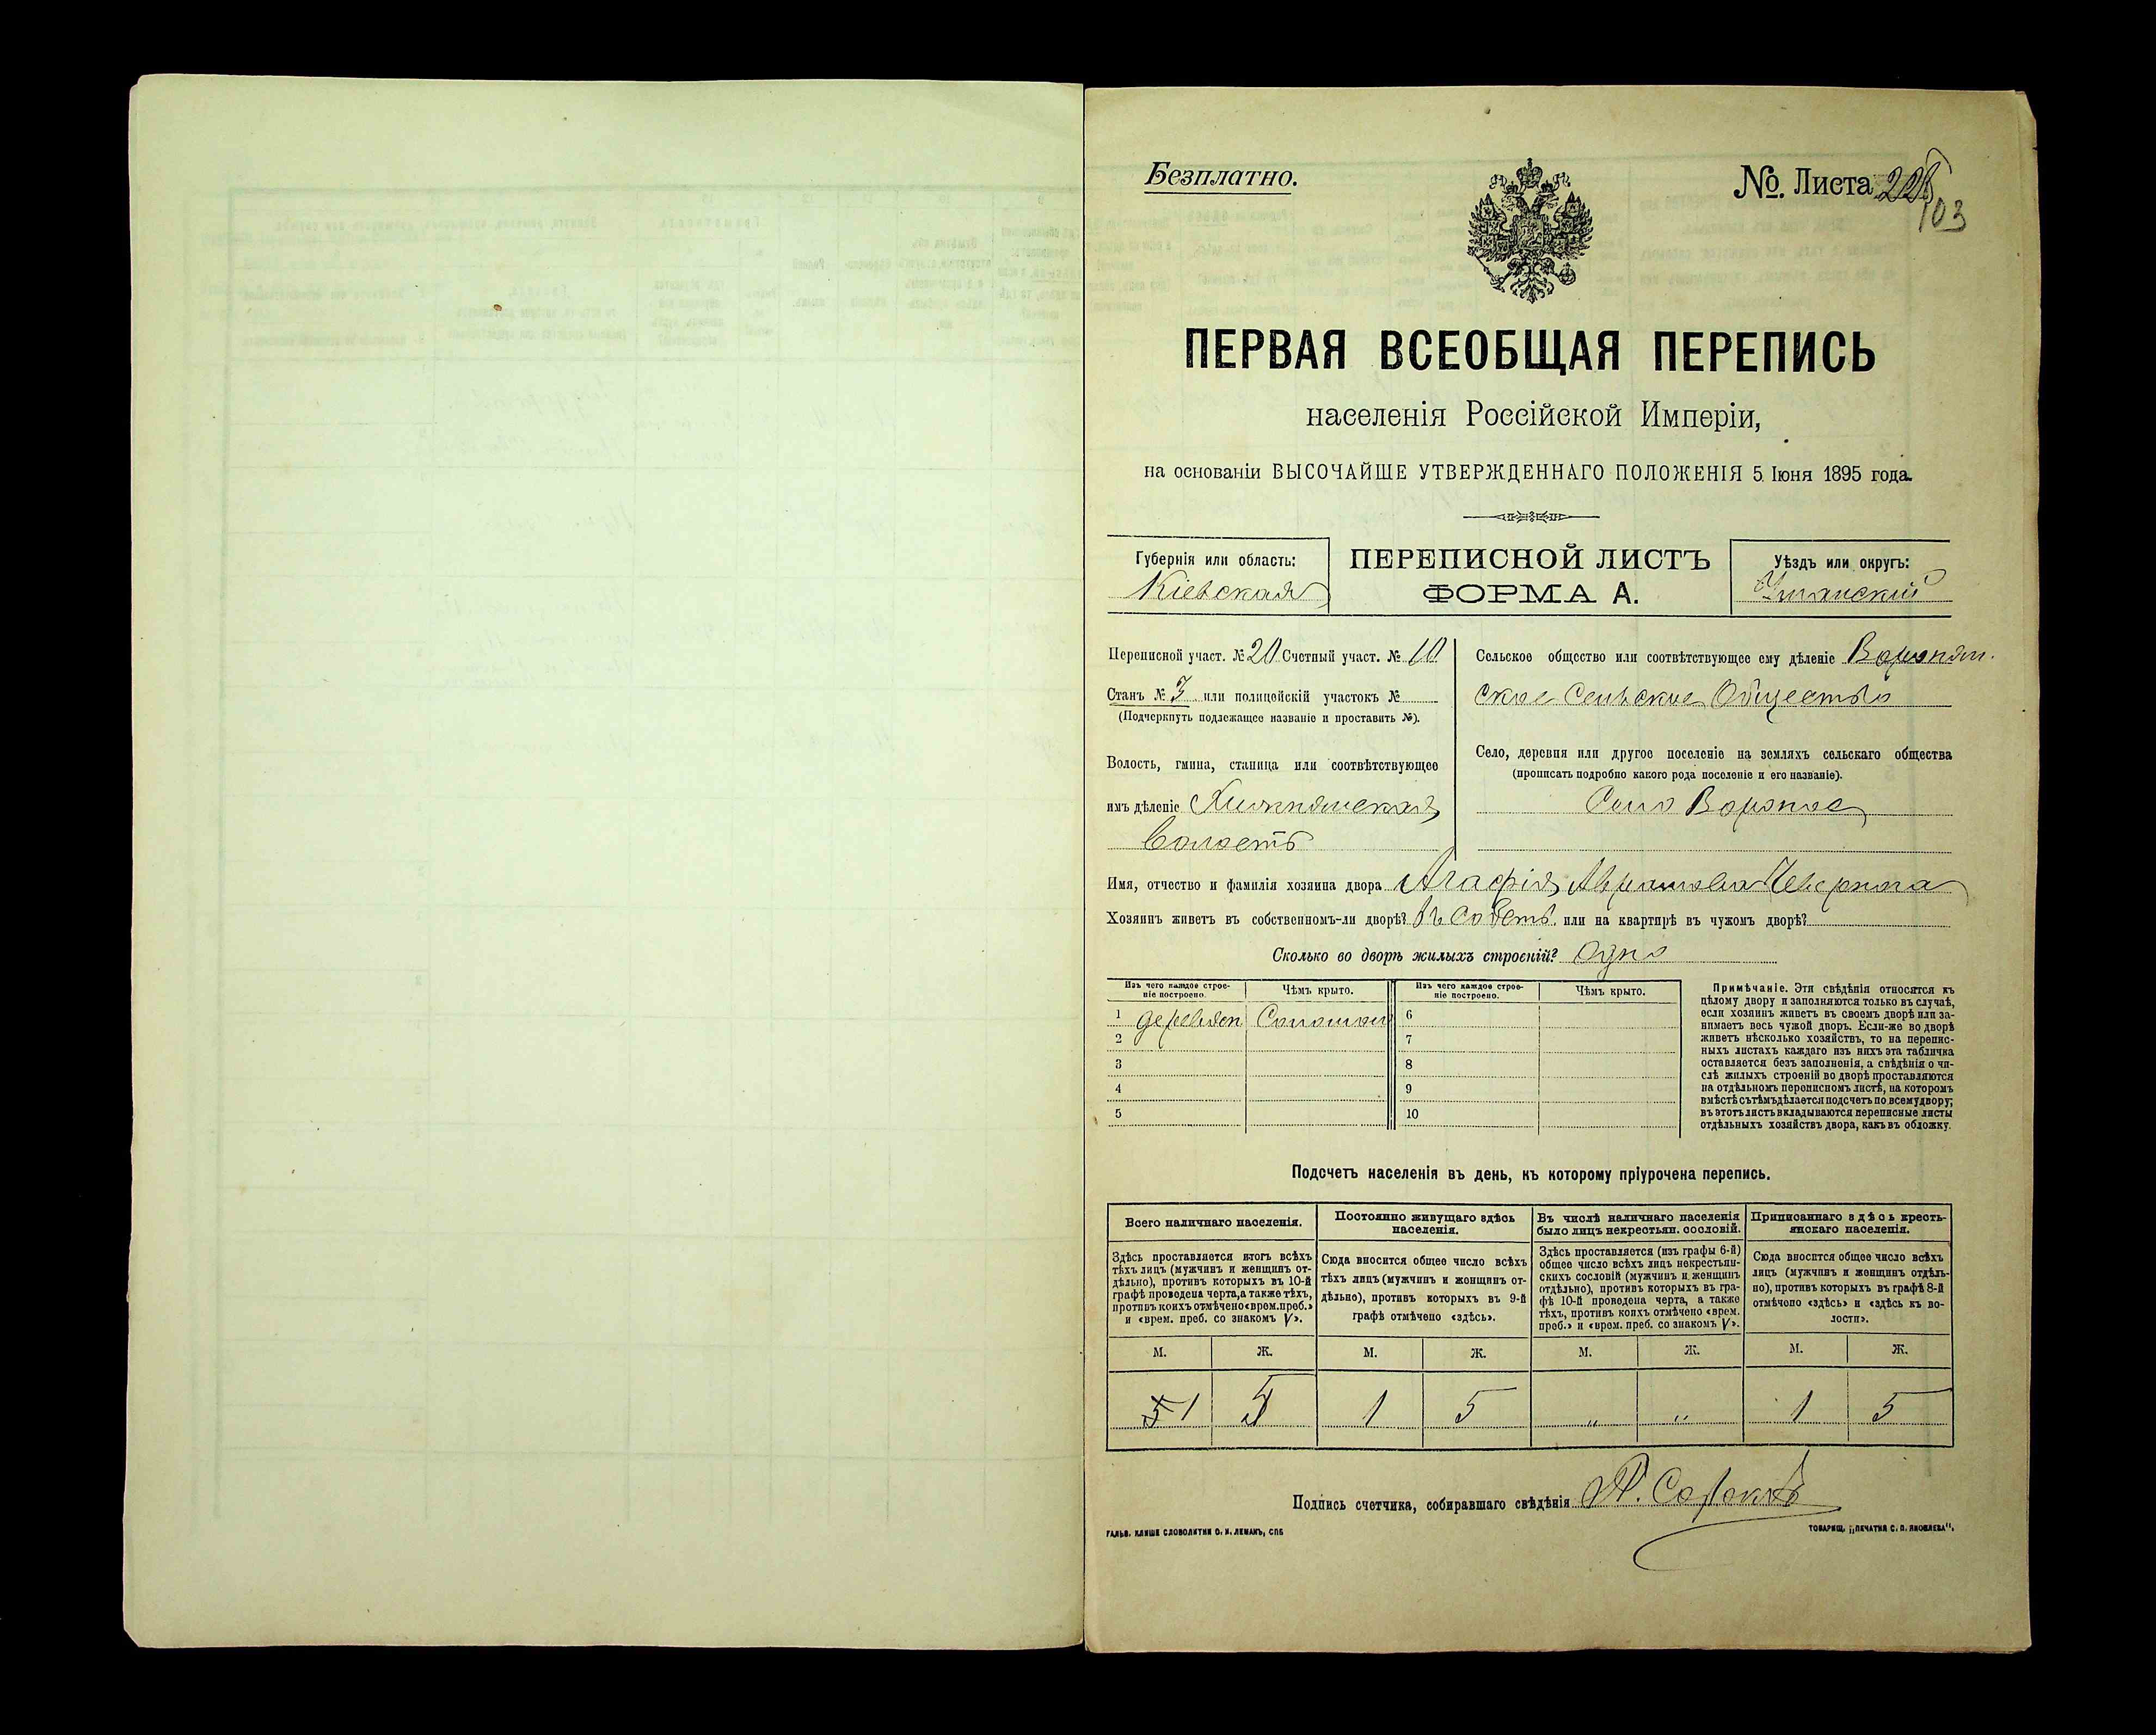 Безплатно.
№. Листа
103
ПЕРВАЯ ВСЕОБЩАЯ ПЕРЕПИСЬ
населенія Россійской Имперіи,
на основаніи ВЫСОЧАЙШЕ УТВЕРЖДЕННАГО ПОЛОЖЕНІЯ 5 Іюня 1895 года.
Губернія или область:
Кіевская
ПЕРЕПИСНОЙ ЛИСТЪ
ФОРМА А.
Уѣздъ или округъ:
Уманскій
Переписной участ. № 20 Счетный участ. № 10
Станъ № 3 или полицейскій участокъ №
(Подчеркнуть подлежащее названіе и проставить №).
Волость, гмина, станица или соотвѣтствующее
имъ дѣленіе
Волость
Сельское общество или соотвѣтствующее ему дѣленіе
ское Сельское Общество
Село, деревня или другое поселеніе на земляхъ сельскаго общества
(прописать подробно какого рода поселеніе и его названіе).
Село
Имя, отчество и фамилія хозяина двора Агафія
Хозяинъ живетъ въ собственномъ-ли дворѣ? Въ собств. или на квартирѣ въ чужомъ дворѣ?
Сколько во дворѣ жилыхъ строеній? Одно
Изъ чего каждое строеніе построено.
Чѣмъ крыто.
Изъ чего каждое строеніе построено.
Чѣмъ крыто.
1 деревян Соломой
2
3
4
5
6
7
8
9
10
Примѣчаніе. Эти свѣдѣнія относятся къ
цѣлому двору и заполняются только въ случаѣ,
если хозяинъ живетъ въ своемъ дворѣ или за-
нимаетъ весь чужой дворъ. Если-же во дворѣ
живетъ нѣсколько хозяйствъ, то на перепис-
ныхъ листахъ каждаго изъ нихъ эта табличка
оставляется безъ заполненія, а свѣдѣнія о чи-
слѣ жилыхъ строеній во дворѣ проставляются
на отдѣльномъ переписномъ листѣ, на которомъ
вмѣстѣ съ тѣмъ дѣлается подсчетъ по всему двору;
въ этотъ листъ вкладываются переписные листы
отдѣльныхъ хозяйствъ двора, какъ въ обложку.
Подсчетъ населенія въ день, къ которому пріурочена перепись.
Всего наличнаго населенія.
Здѣсь проставляется итогъ всѣхъ
тѣхъ лицъ (мужчинъ и женщинъ от-
дѣльно), противъ которыхъ въ 10-й
графѣ проведена черта, а также тѣхъ,
противъ коихъ отмѣчено «врем. преб.»
и «врем. преб. со знакомъ V».
Постоянно живущаго здѣсь
населенія.
Сюда вносится общее число всѣхъ
тѣхъ лицъ (мужчинъ и женщинъ от-
дѣльно), противъ которыхъ въ 9-й
графѣ отмѣчено «здѣсь».
Въ числѣ наличнаго населенія
было лицъ некрестьян. сословій.
Здѣсь проставляется (изъ графы 6-й)
общее число всѣхъ лицъ некрестьян-
скихъ сословій (мужчинъ и женщинъ
отдѣльно), противъ которыхъ въ гра-
фѣ 10-й проведена черта, а также
тѣхъ, противъ коихъ отмѣчено «врем.
преб.» и «врем. преб. со знакомъ V».
Приписаннаго здѣсь кресть-
янскаго населенія.
Сюда вносится общее число всѣхъ
лицъ (мужчинъ и женщинъ отдѣль-
но), противъ которыхъ въ графѣ 8-й
отмѣчено «здѣсь» и «здѣсь къ во-
лости».
М. Ж. М. Ж. М. Ж. М. Ж.
5 1 5 1 5 „ „ 1 5
Подпись счетчика, собиравшаго свѣдѣнія
ГАЛЬВ. КЛИШЕ СЛОВОЛИТНИ О. И. ЛЕМАНЪ, СПБ
ТОВАРИЩ. „ПЕЧАТНЯ С. П. ЯКОВЛЕВА".